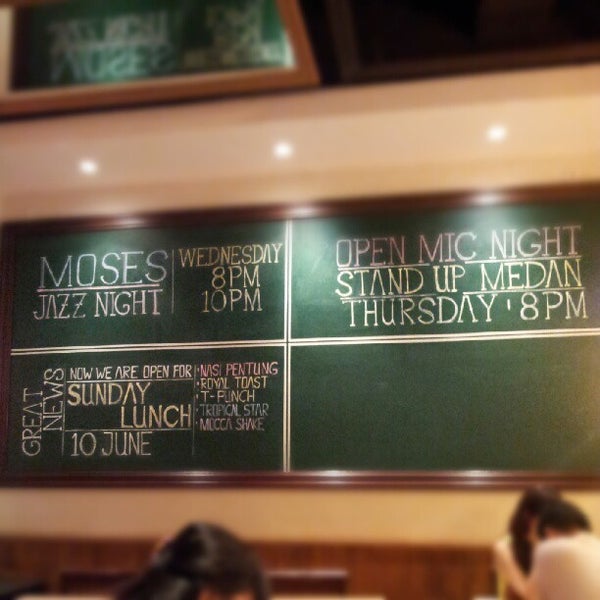 MOSES
JAZZ NIGHT
WEDNESDAY
8PM
10PM
OPEN MIC NIGHT
STAND UP MEDAN
THURSDAY ' 8PM
GREAT
NEWS
NOW WE ARE OPEN FOR
SUNDAY
LUNCH
10 JUNE
· NASI PENTUNG
· ROYAL TOAST
· T-PUNCH
· TROPICAL STAR
· MOCCA SHAKE